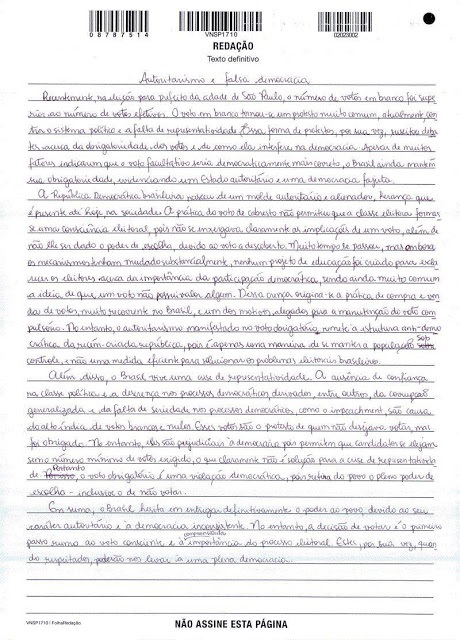 08787514
VNSP1710
02023002
REDAÇÃO
Texto definitivo
Autoritarismo e falsa democracia
Recentemente, na eleição para prefeito da cidade de São Paulo, o número de votos em branco foi supe-
rior ao número de votos efetivos. O voto em branco tornou-se um protesto muito comum, atualmente con-
tra o sistema político e a falta de representatividade. Essa forma de protestos, por sua vez, suscita deba-
tes acerca da obrigatoriedade dos votos e de como ela interfere na democracia. Apesar de muitos
fatores indicarem que o voto facultativo seria democraticamente mais correto, o Brasil ainda mantém
sua obrigatoriedade, evidenciando um Estado autoritário e uma democracia falsa.
A República Democrática brasileira nasceu de um molde autoritário e alienador, herança que
é presente até hoje na sociedade. A prática do voto de cabresto não permitiu que a classe eleitora formas-
se uma consciência eleitoral, pois não se enxergava claramente as implicações de um voto, além de
não lhe ser dado o poder de escolha, devido ao voto a descoberto. Muito tempo se passou, mas embora
os mecanismos tenham mudado substancialmente, nenhum projeto de educação foi criado para escla-
recer os eleitores acerca da importância da participação democrática, sendo ainda muito comum
a ideia de que um voto não possui valor algum. Dessa crença origina-se a prática de compra e ven-
da de votos, muito recorrente no Brasil, e um dos motivos alegados para a manutenção do voto com-
pulsório. No entanto, o autoritarismo manifestado no voto obrigatório remete à estrutura anti-demo-
crática da recém-criada república, pois é apenas uma maneira de se manter a população sob
controle, e não uma medida eficiente para solucionar os problemas eleitorais brasileiros.
Além disso, o Brasil vive uma crise de representatividade. A ausência de confiança
na classe política e a descrença nos processos democráticos derivados, entre outros, da corrupção
generalizada e da falta de seriedade nos processos democráticos, como o impeachment, são causa
do alto índice de votos brancos e nulos. Esses votos são o protesto de quem não desejava votar, mas
foi obrigado. No entanto, eles são prejudiciais à democracia pois permitem que candidatos se elejam
sem o número mínimo de votos exigido, o que claramente não é solução para a crise de representativida-
de. Portanto, o voto obrigatório é uma violação democrática, pois retira do povo o pleno poder de
escolha - inclusive o de não votar.
Em suma, o Brasil hesita em entregar definitivamente o poder ao povo devido ao seu
caráter autoritário e à democracia inconsistente. No entanto, a decisão de votar é o primeiro
passo rumo ao voto consciente e à importância do processo eleitoral. Estes, por sua vez, quan-
do respeitados, poderão nos levar a uma plena democracia.
VNSP1710 / FolhaRedação.
NÃO ASSINE ESTA PÁGINA